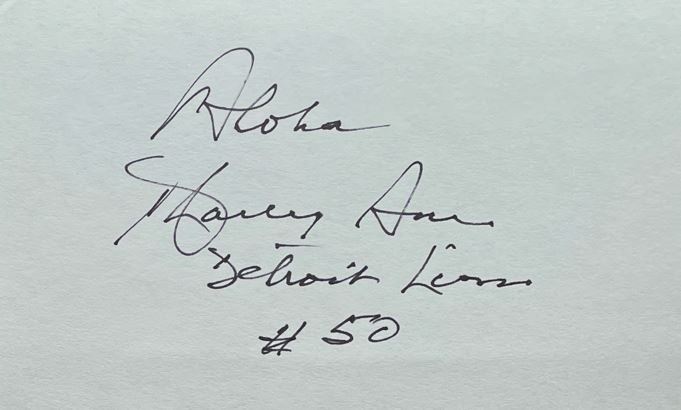 Aloha
Charley Ane
Detroit Lions
# 50